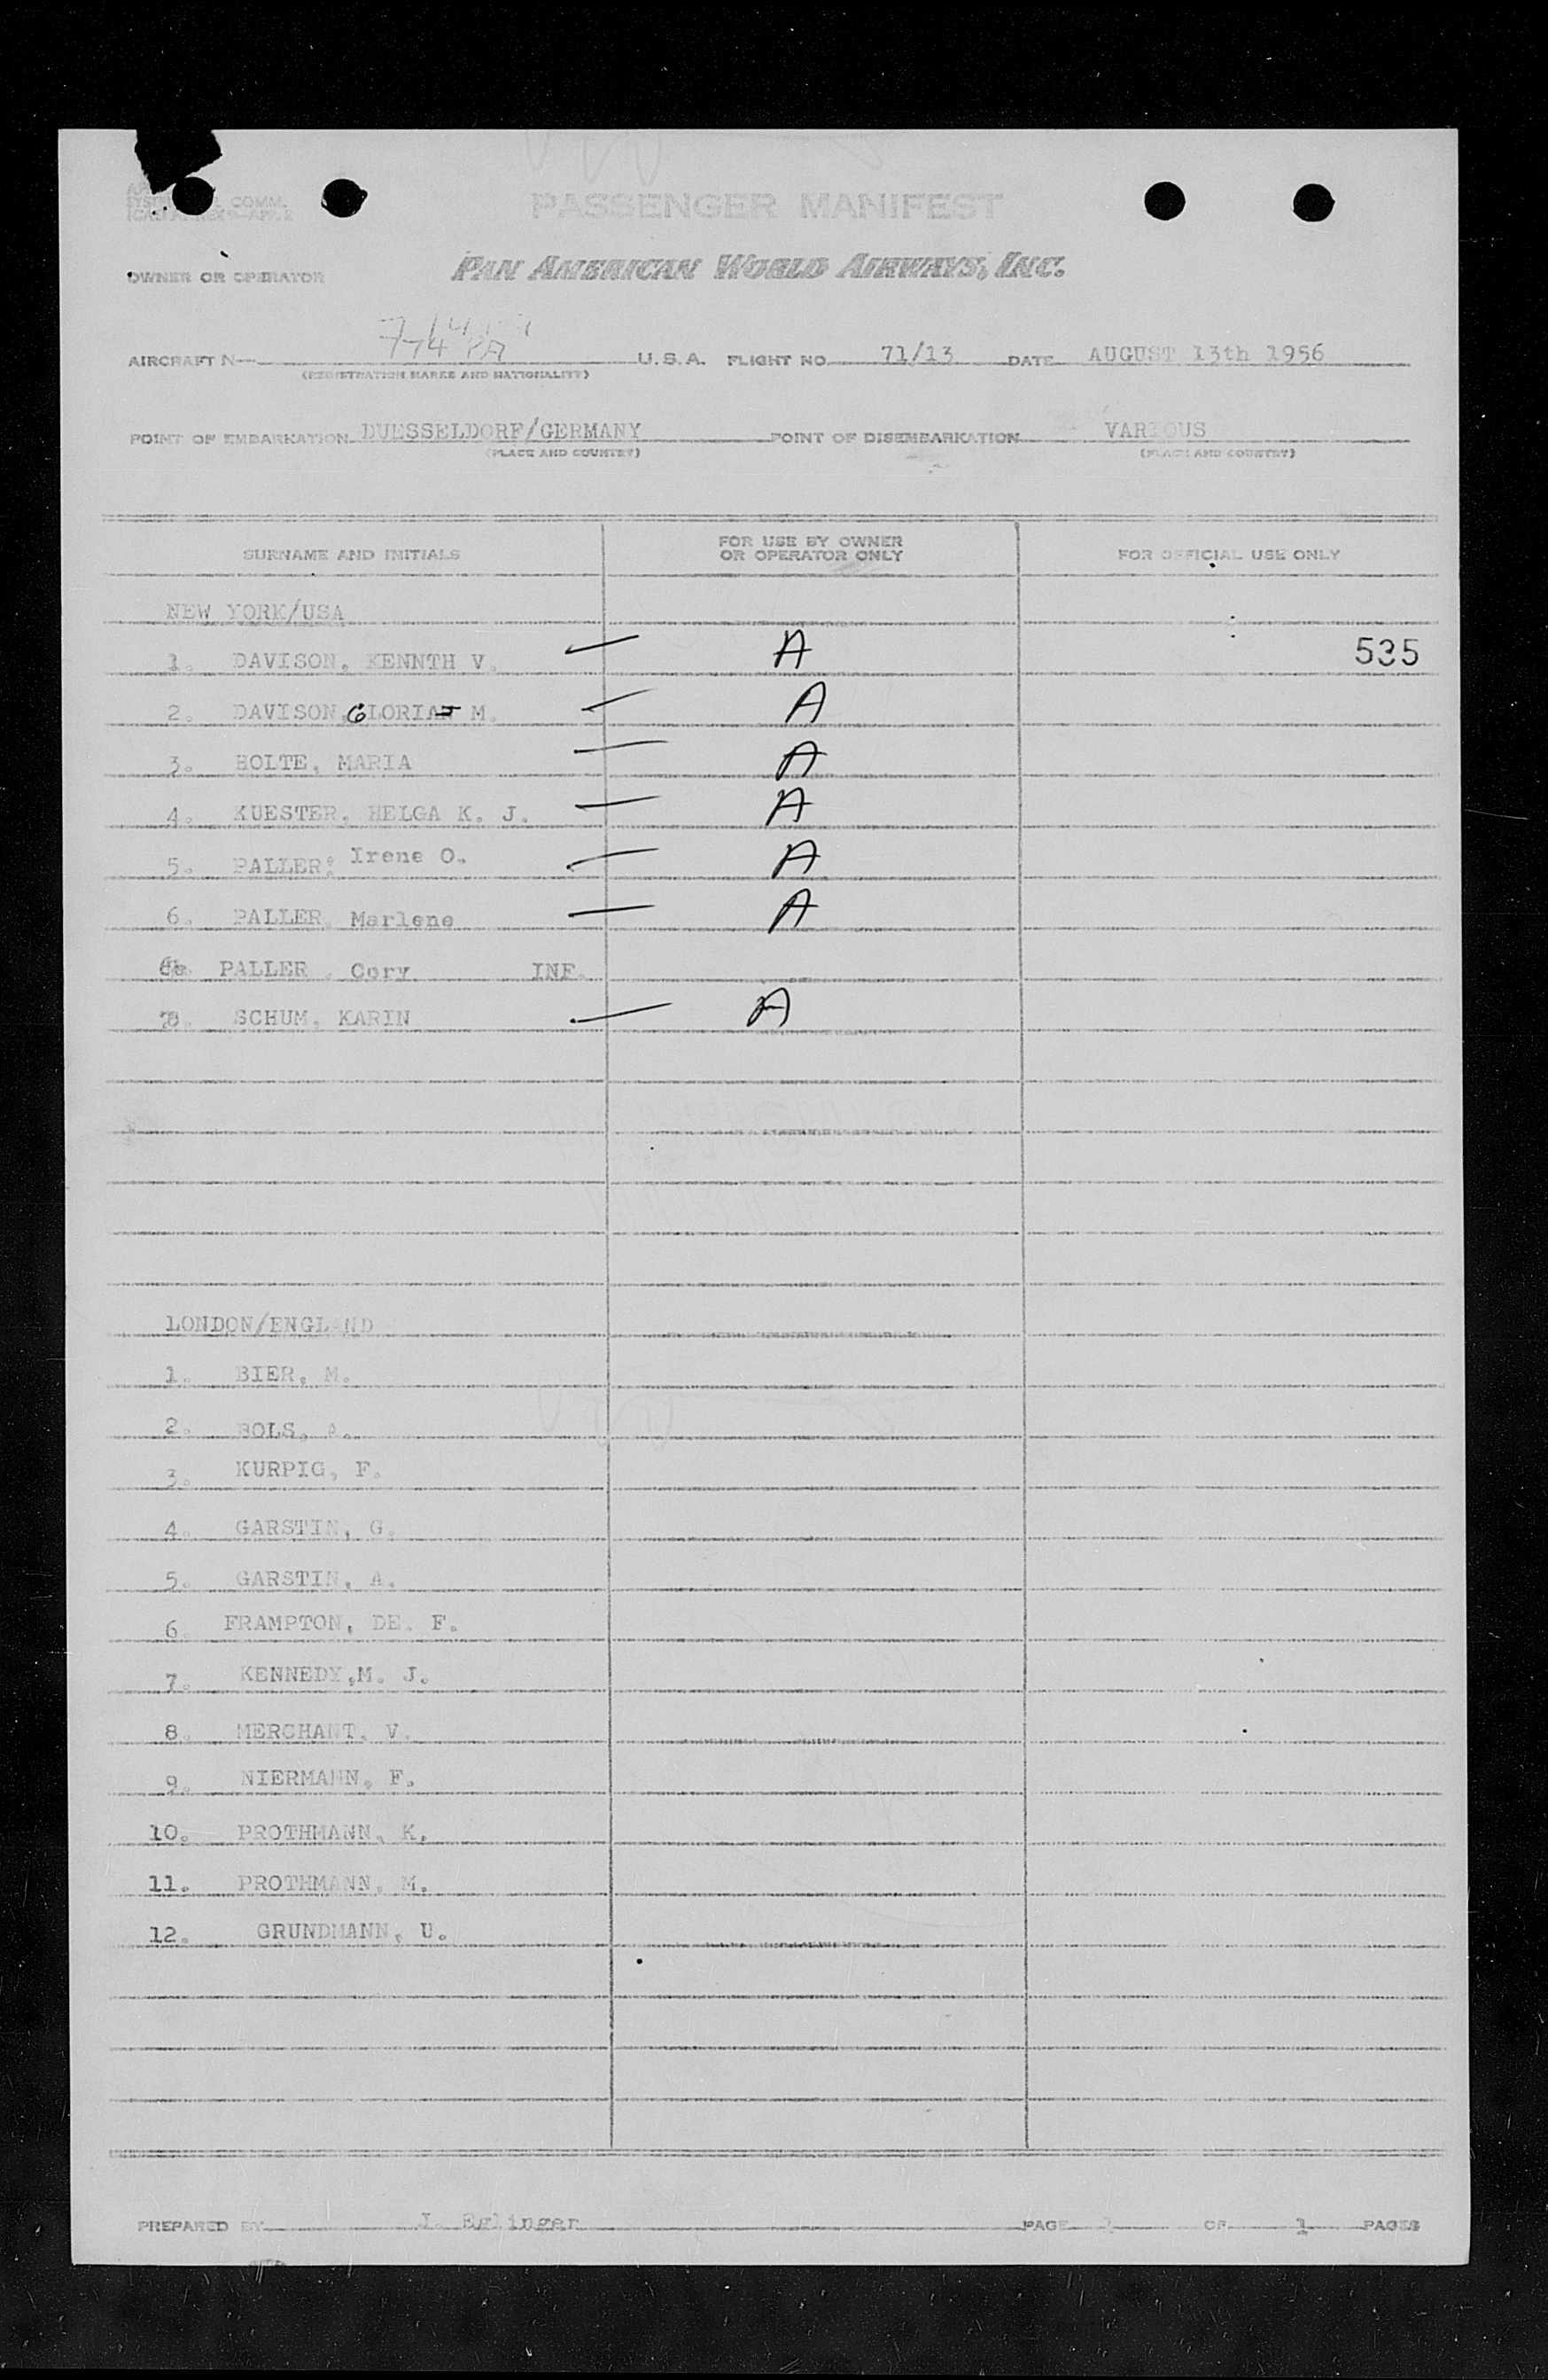 COMM.
PASSENGER MANIFEST
OWNER OR OPERATOR PAN AMERICAN WORLD AIRWAYS, INC.
AIRCRAFT N U.S.A. FLIGHT NO. 71/13 DATE AUGUST 13th 1956
(REGISTRATION MARKS AND NATIONALITY)
POINT OF EMBARKATION DUESSELDORF/GERMANY POINT OF DISEMBARKATION VARIOUS
(PLACE AND COUNTRY) (PLACE AND COUNTRY)
SURNAME AND INITIALS FOR USE BY OWNER OR OPERATOR ONLY FOR OFFICIAL USE ONLY
NEW YORK/USA
1. DAVISON, KENNTH V. — A 535
2. DAVISON, GLORIA M. — A
3. HOLTE, MARIA — A
4. KUESTER, HELGA K. J. — A
5. PALLER, Irene O. — A
6. PALLER, Marlene — A
PALLER, Cory INF.
SCHUM, KARIN — A
LONDON/ENGLAND
1. BIER, M.
2. BOLS, A.
3. KURPIG, F.
4. GARSTIN, G.
5. GARSTIN, A.
6. FRAMPTON, DE. F.
7. KENNEDY,M. J.
8. MERCHANT, V.
9. NIERMANN, F.
10. PROTHMANN, K.
11. PROTHMANN, M.
12. GRUNDMANN, U.
PREPARED BY J. Eglinger PAGE 1 OF 1 PAGES